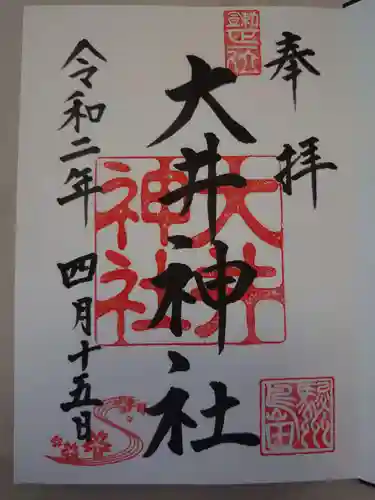 奉拝
大井神社
大井神社
令和二年四月十五日